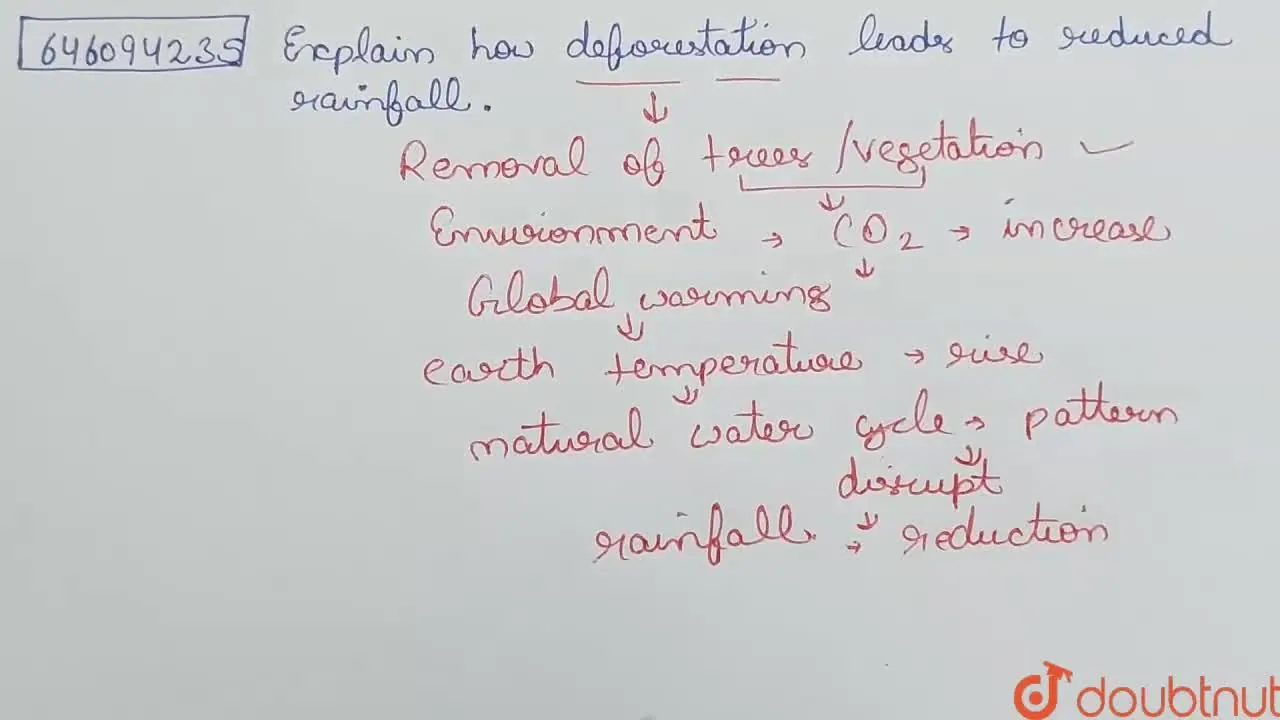 646094235 Explain how deforestation leads to reduced
rainfall.
↓
Removal of trees /vegetation ✓
↓
Environment → CO2 → increase
↓
Global warming
↓
earth temperature → rise
↓
natural water cycle → pattern
↓
disrupt
↓
rainfall. → reduction
doubtnut